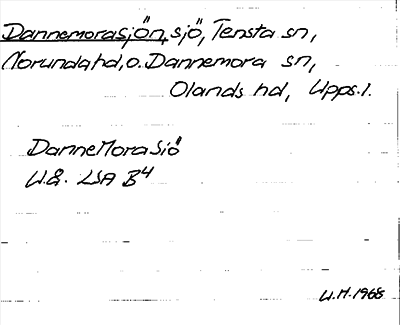 Dannemorasjön, sjö, Tensta sn,
Norunda hd, o. Dannemora sn,
Olands hd, Upps. l.
DanneMora Siö
U.8. LSA B4
U.H. 1968